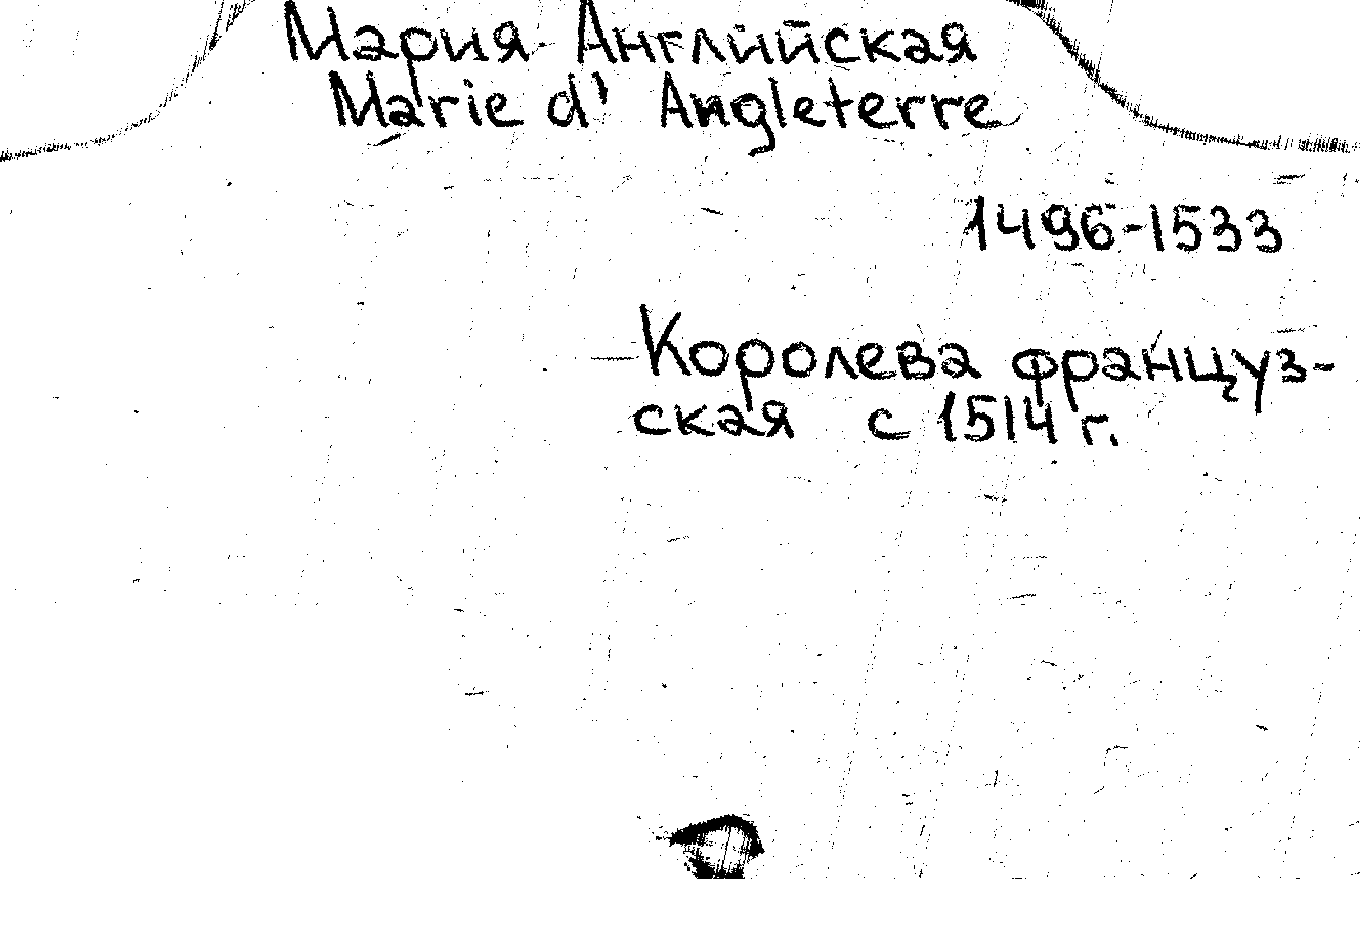 Мария Английская
Marie d' Angleterre
1496-1533
Королева француз-
ская с 1514 г.